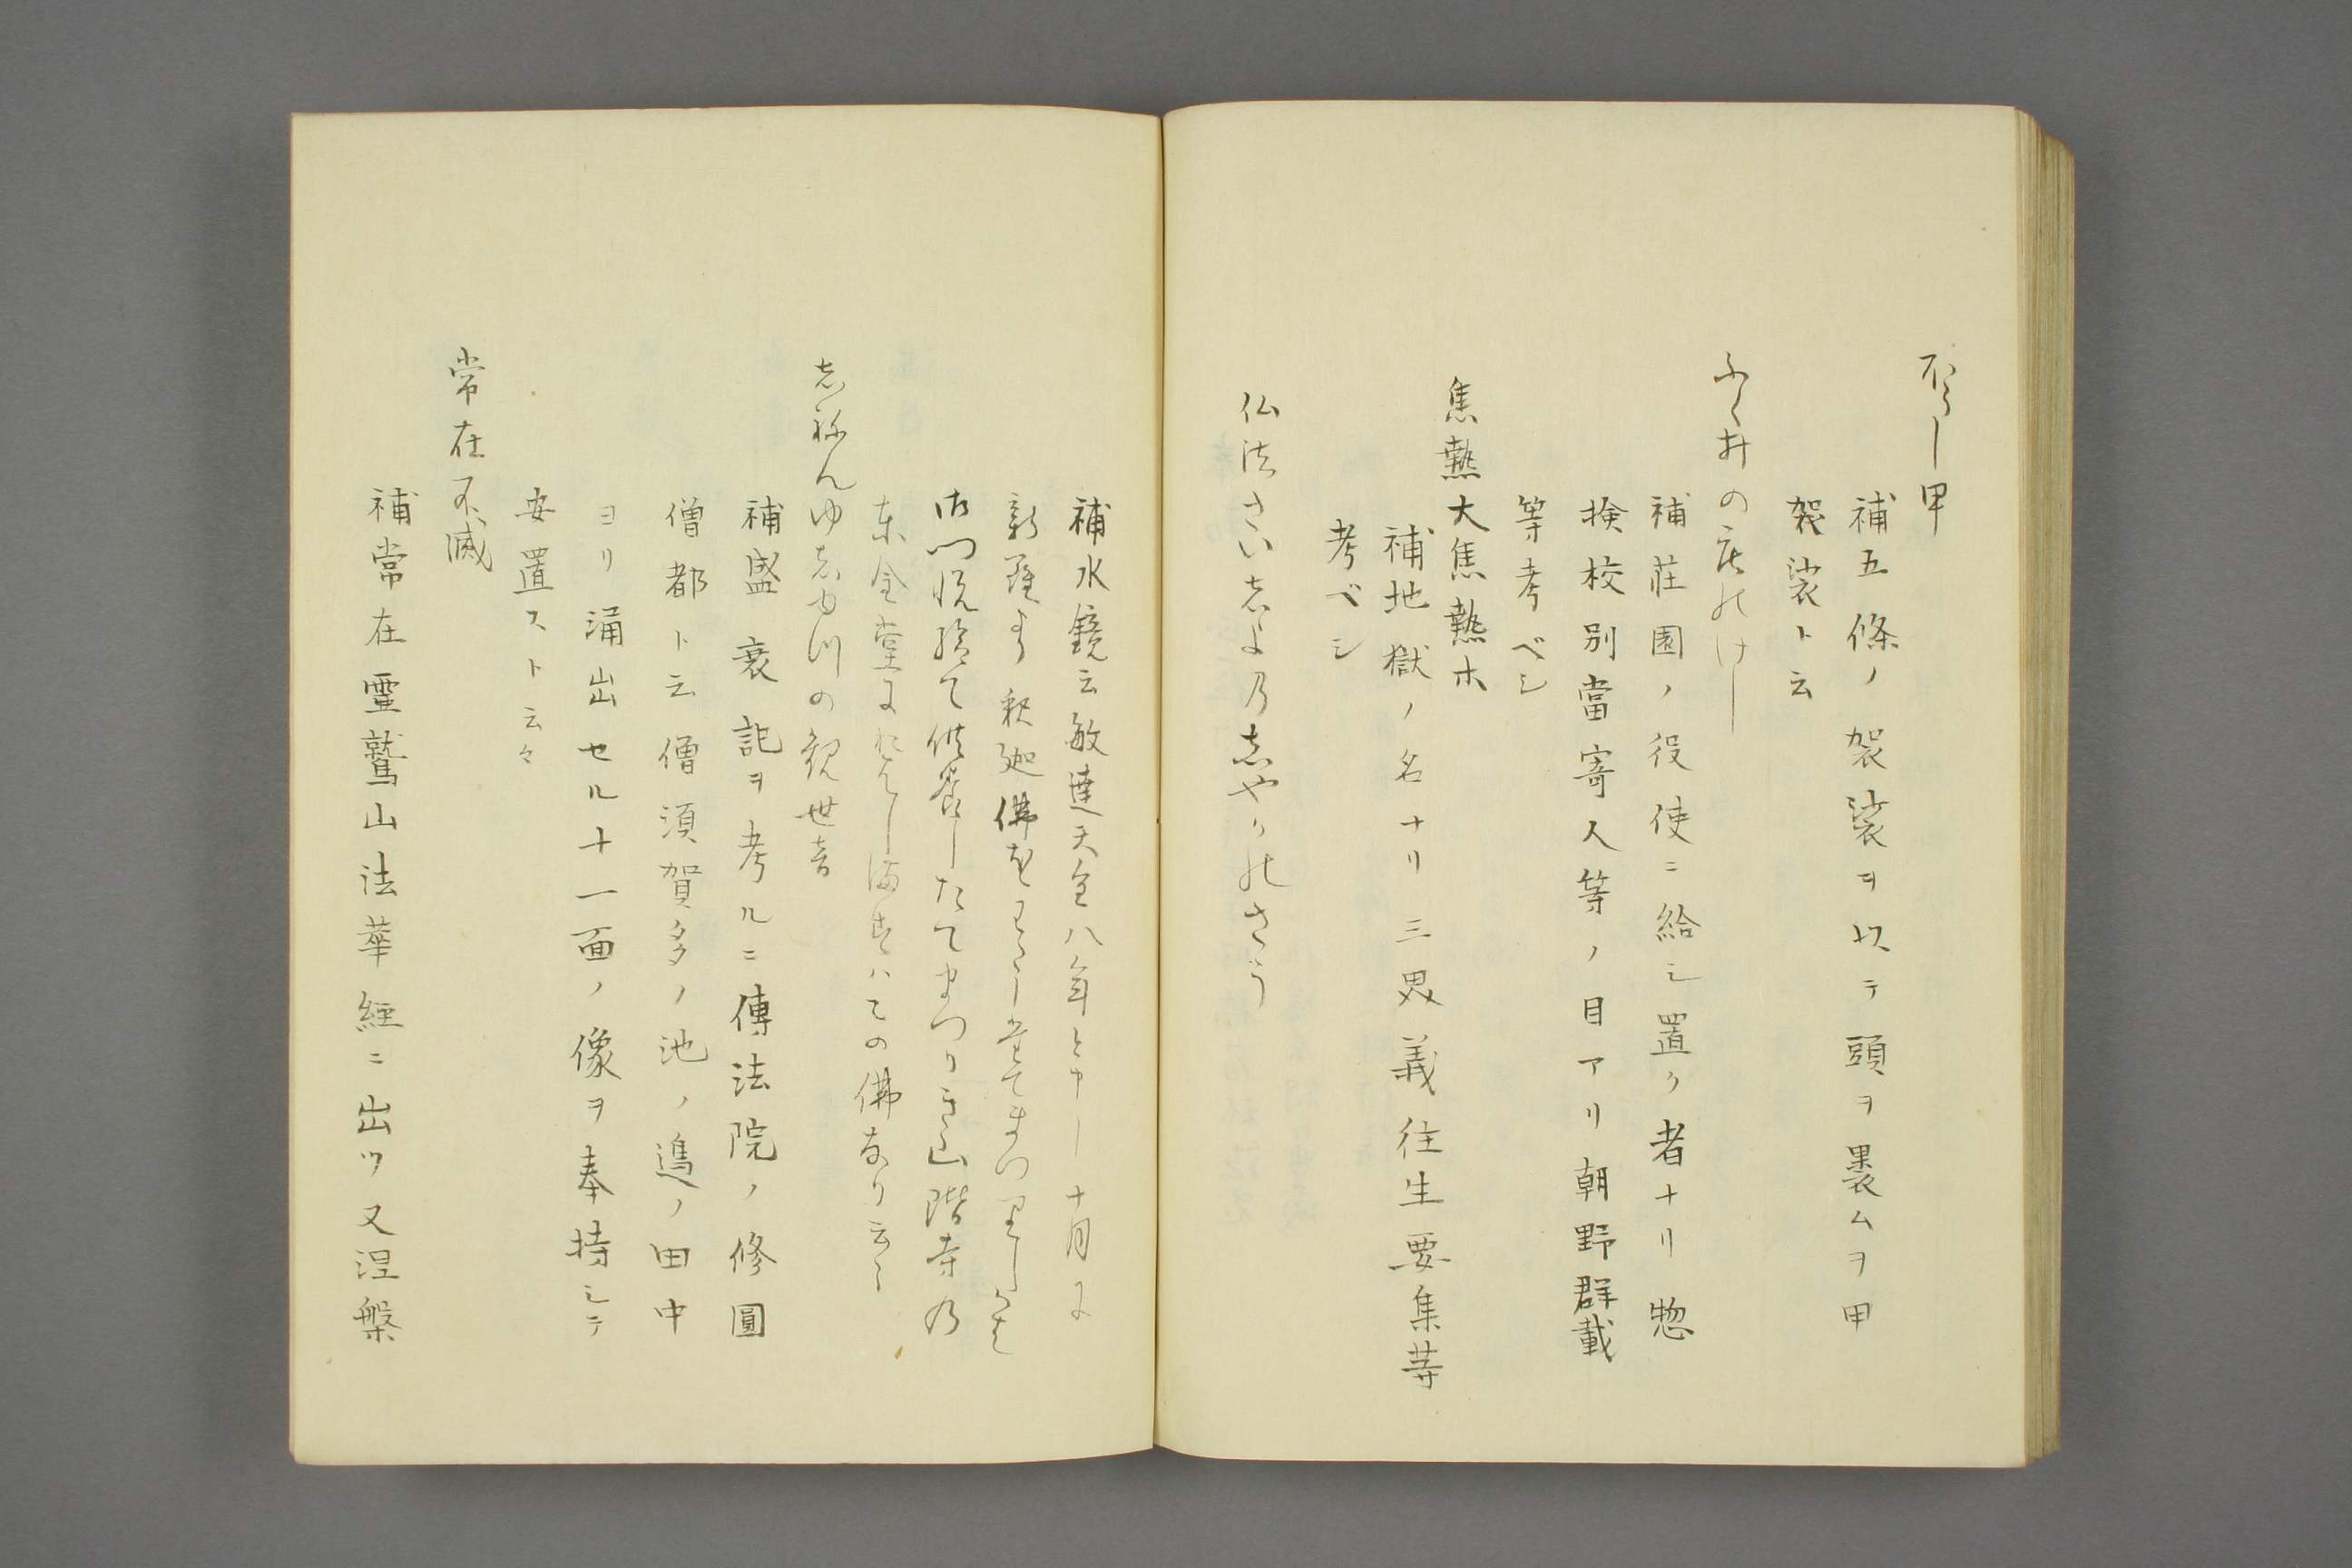 甲
補五條ノ袈裟ヲ以テ頭ヲ裹ムヲ甲
袈裟ト云
ふく井の庄のけし
補荘園ノ役使ニ給シ置ク者ナリ惣
検校別當寄人等ノ目アリ朝野群載
等考ベシ
焦熱大焦熱木
補地獄ノ名ナリ三界義往生要集等
考ベシ
仏法さいしよのしやかのさう
補水鏡云敏達天皇八年と申し十月に
新羅より釈迦佛をわたしたてまつりしかは
御門悦給て供養したてまつりき山階寺の
東金堂におはしますはこの佛なり云々
しねんゆしゆつの観世音
補盛衰記ヲ考ルニ傳法院ノ修圓
僧都ト云僧須賀多ノ池ノ邉ノ田中
ヨリ涌出セル十一面ノ像ヲ奉持シテ
安置ストト云々
常在不滅
補常在霊鷲山法華経ニ出ツ又涅槃